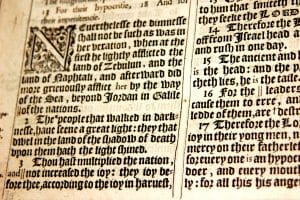 1 For their hypocrisie, 18 And for
their impenitencie.
Neverthelesse the dimnesse
shall not be such as was in
her vexation, when at the
first he lightly afflicted the
land of Zebulun, and the
land of Naphtali, and afterward did
more grievously afflict her by the way
of the Sea, beyond Jordan in Galile
of the nations.
2 The people that walked in dark-
nesse, have seene a great light: they that
dwel in the land of the shadow of death
upon them hath the light shined.
3 Thou hast multiplied the nation,
and not increased the ioy: they ioy be
fore thee, according to the ioy in harvest,
they seeke the LORD
14 Therefore the
off from Israel head a
and rush in one day.
15 The ancient and
is the head: and the p
cheth lies, he is the taile
16 For the leaders
cause them to erre, and
ledde of them, are destr
17 Therefore the LOR
ioy in their yong men, n
mercy on their fatherle
for every one is an hypoc
doer, and every mouth
ly: for all this his ange